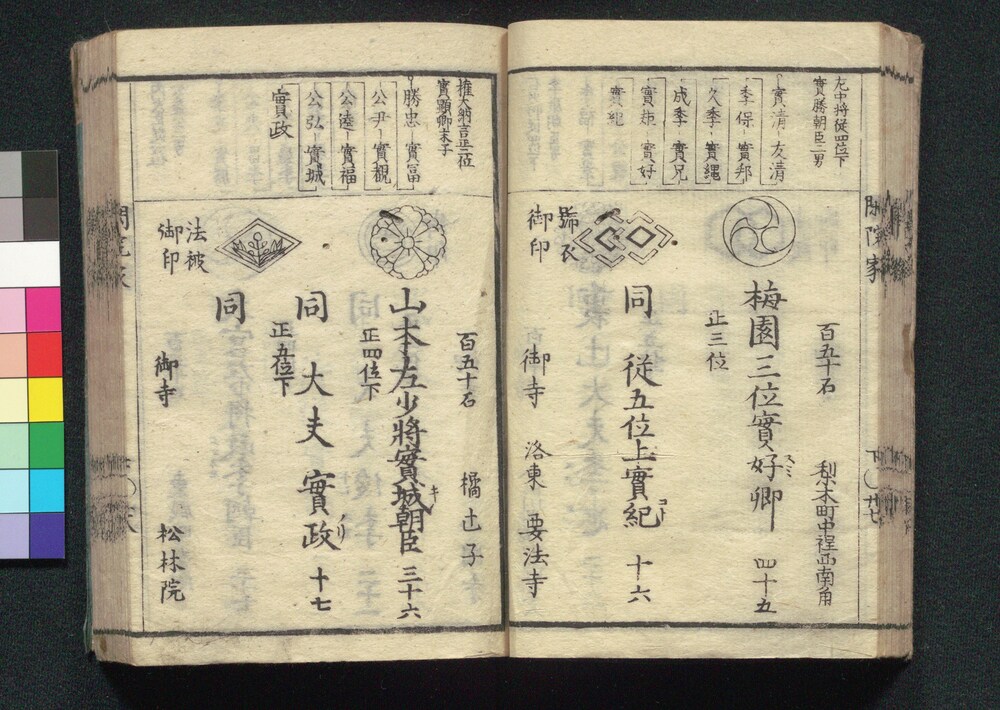 左中将従四位下
實勝朝臣二男
實清 友清
季保 實邦
久季 實縄
成季 實兄
實矩 實好
實紀
百五十石 梨木町中程西南角
梅園三位實好卿 四十五
スミ
正三位
同 従五位上實紀 十六
コト
御印 御寺 洛東 要法寺
権大納言正二位
實顕卿末子
勝忠 實冨
公尹 實觀
公達 實福
公弘 實城
實政
百五十石 橘辻子
山本左少将實城朝臣 三十六
キ
正四位下
同 大夫實政 十七
ノリ
正五位下
同
法被
御印 御寺 松林院